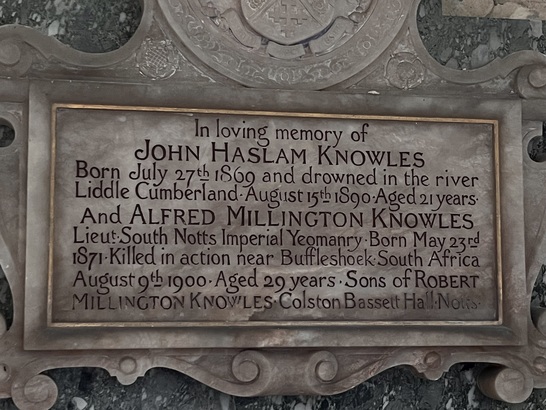 In loving memory of
JOHN HASLAM KNOWLES
Born July 27th 1869 and drowned in the river
Liddle Cumberland·August 15th 1890·Aged 21 years·
And ALFRED MILLINGTON KNOWLES
Lieut·South Notts Imperial Yeomanry·Born May 23rd
1871·Killed in action near Buffleshoek·South Africa
August 9th 1900·Aged 29 years·Sons of ROBERT
MILLINGTON KNOWLES·Colston Bassett Hall·Notts·